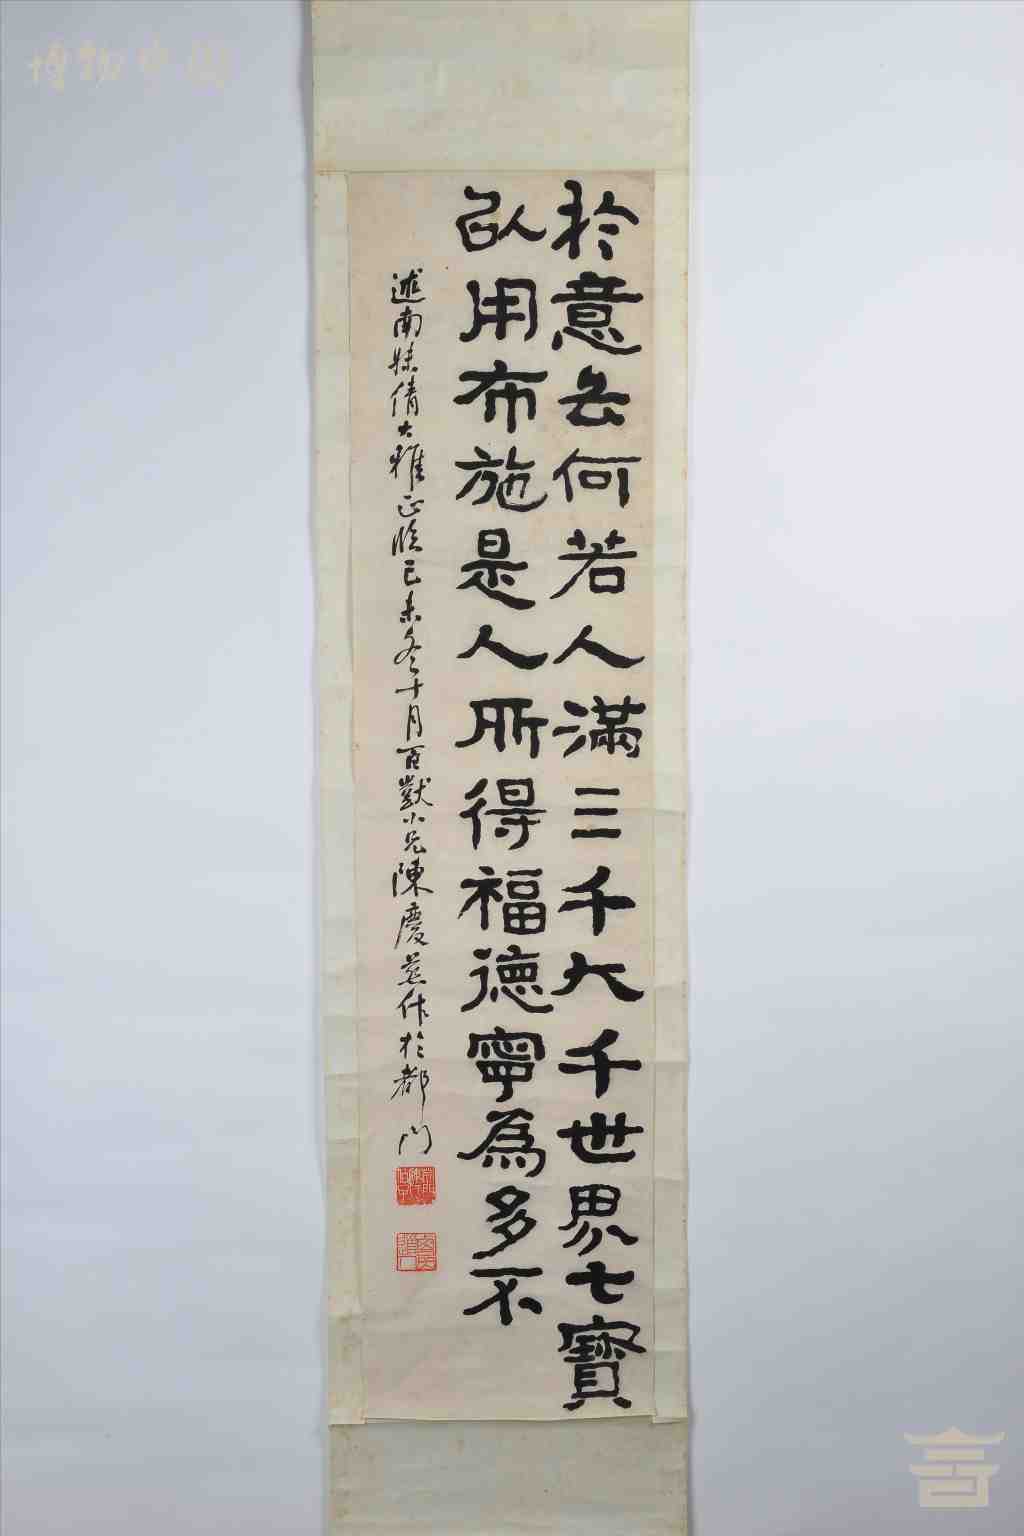 於意云何若人滿三千大千世界七寶
以用布施是人所得福德寧為多不
述南妹倩大雅正腕己未冬十月百獸小兄陳慶作於都門
博物中國